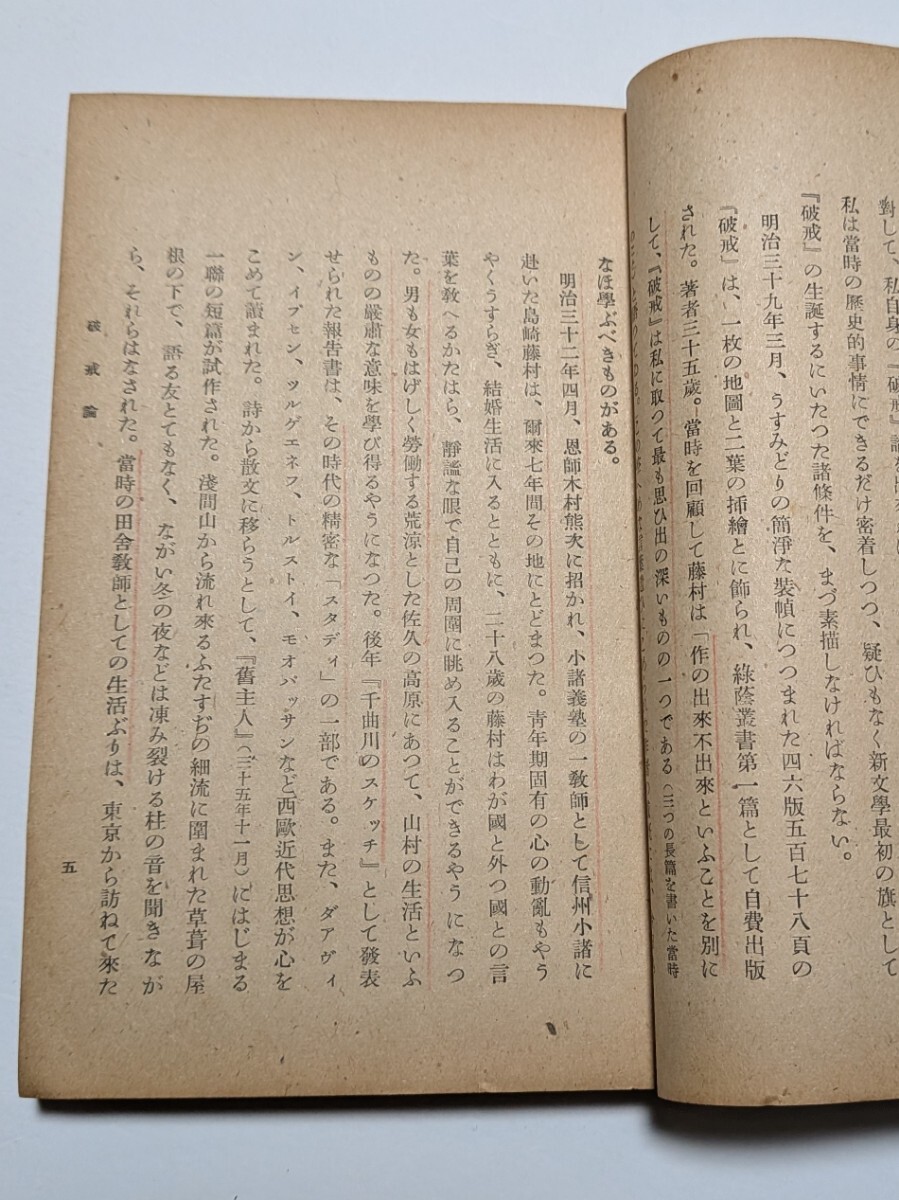 對して、私自身の『破戒』論を
私は當時の歴史的事情にできるだけ密着しつつ、疑ひもなく新文學最初の旗として
『破戒』の生誕するにいたつた諸條件を、まづ素描しなければならない。
明治三十九年三月、うすみどりの簡淨な裝幀につつまれた四六版五百七十八頁の
『破戒』は、一枚の地圖と二葉の挿繪とに飾られ、綠蔭叢書第一篇として自費出版
された。著者三十五歳。當時を回顧して藤村は「作の出來不出來といふことを別に
して、『破戒』は私に取つて最も思ひ出の深いものの一つである（三つの長篇を書いた當時
なほ學ぶべきものがある。
明治三十二年四月、恩師木村熊次に招かれ、小諸義塾の一敎師として信州小諸に
赴いた島崎藤村は、爾來七年間その地にとどまつた。靑年期固有の心の動亂もやう
やくうすらぎ、結婚生活に入るとともに、二十八歳の藤村はわが國と外つ國との言
葉を敎へるかたはら、靜謐な眼で自己の周圍に眺め入ることができるやうになつ
た。男も女もはげしく勞働する荒涼とした佐久の高原にあつて、山村の生活といふ
ものの嚴肅な意味を學び得るやうになつた。後年『千曲川のスケッチ』として發表
せられた報告書は、その時代の精密な「スタディ」の一部である。また、ダアヴィ
ン、イプセン、ツルゲエネフ、トルストイ、モオパッサンなど西歐近代思想が心を
こめて讀まれた。詩から散文に移らうとして、『舊主人』（三十五年十一月）にはじまる
一聯の短篇が試作された。淺間山から流れ來るふたすぢの細流に圍まれた草葺の屋
根の下で、語る友とてもなく、ながい冬の夜などは凍み裂ける柱の音を聞きなが
ら、それらはなされた。當時の田舍敎師としての生活ぶりは、東京から訪ねて來た
破戒論
五